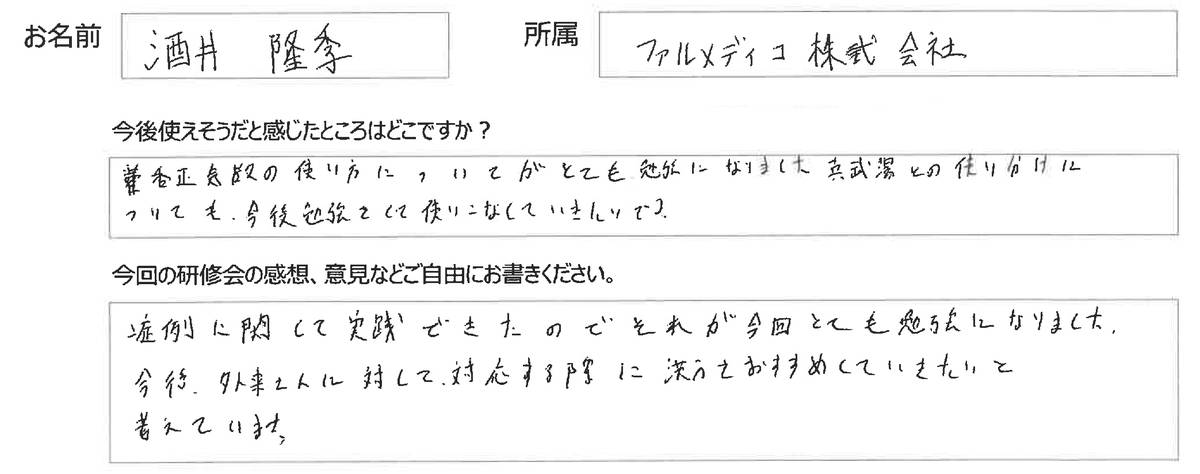 お名前 酒井 隆季 所属 ファルメディコ株式会社
今後使えそうだと感じたところはどこですか？
藿香正気散の使い方についてがとても勉強になりました 真武湯との使い分けに
ついても、今後勉強をして使いこなしていきたいです。
今回の研修会の感想、意見などご自由にお書きください。
症例に関して実践できたのでそれが今回とても勉強になりました。
今後、外来さんに対して、対応する際に漢方をおすすめしていきたいと
考えています。